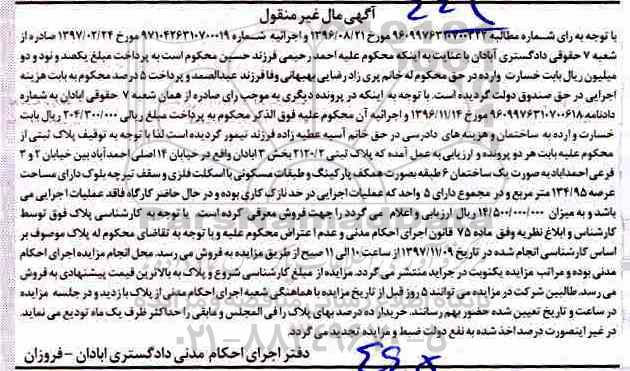 آگهی مال غیر منقول
با توجه به رای شماره مطالبه ۹۶۰۹۹۷۶۳۱۰۷۰۰۳۲۲ مورخ ۱۳۹۶/۰۸/۲۱ و اجرائیه شماره ۹۷۱۰۴۲۶۳۱۰۷۰۰۰۱۹ مورخ ۱۳۹۷/۰۲/۲۴ صادره از
شعبه ۷ حقوقی دادگستری آبادان با عنایت به اینکه محکوم علیه احمد رحیمی فرزند حسین محکوم است به پرداخت مبلغ یکصد و نود و دو
میلیون ریال بابت خسارت وارده در حق محکوم له خانم پری زاد رضایی بهبهانی وفا فرزند عبدالصمد و پرداخت ۵ درصد محکوم به بابت هزینه
اجرایی در حق صندوق دولت گردیده است. با توجه به اینکه در پرونده دیگری به موجب رای صادره از همان شعبه ۷ حقوقی ابادان به شماره
دادنامه ۹۶۰۹۹۷۶۳۱۰۷۰۰۶۱۸ مورخ ۱۳۹۶/۱۱/۱۴ و اجرائیه آن محکوم علیه فوق الذکر محکوم به پرداخت مبلغ ریالی ۲۰۴/۳۰۰/۰۰۰ ریال بابت
خسارت وارده به ساختمان و هزینه های دادرسی در حق خانم آسیه عطیه زاده فرزند تیمور گردیده است لذا با توجه به توقیف پلاک ثبتی از
محکوم علیه بابت هر دو پرونده و ارزیابی به عمل آمده که پلاک ثبتی ۲۱۲۰/۲ بخش ۳ ابادان واقع در خیابان ۱۴ اصلی احمدآباد بین خیابان ۲ و ۳
فرعی احمداباد به صورت یک ساختمان ۶ طبقه بصورت همکف پارکینگ و طبقات مسکونی با اسکلت فلزی و سقف تیرچه بلوک دارای مساحت
عرصه ۱۳۴/۹۵ متر مربع و در مجموع دارای ۵ واحد که عملیات اجرایی در حد نازک کاری بوده و در حال حاضر کارگاه فاقد عملیات اجرایی می
باشد و به میزان ۱۴/۵۰۰/۰۰۰/۰۰۰ ریال ارزیابی و اعلام می گردد را جهت فروش معرفی کرده است. با توجه به کارشناسی پلاک فوق توسط
کارشناس و ابلاغ نظریه وفق ماده ۷۵ قانون اجرای احکام مدنی و عدم اعتراض محکوم علیه و با توجه به تقاضای محکوم له پلاک موصوف بر
اساس کارشناسی انجام شده در تاریخ ۱۳۹۷/۱۱/۰۹ از ساعت ۱۰ الی ۱۱ صبح از طریق مزایده به فروش می رسد. محل انجام مزایده اجرای احکام
مدنی بوده و مراتب مزایده یکنوبت در جراید منتشر می گردد. مزایده از مبلغ کارشناسی شروع و پلاک به بالاترین قیمت پیشنهادی به فروش
می رسد. طالبین شرکت در مزایده می توانند ۵ روز قبل از تاریخ مزایده با هماهنگی شعبه اجرای احکام مدنی از پلاک بازدید و در جلسه مزایده
در ساعت و تاریخ تعیین شده حضور بهم رسانند. خریدار ده درصد بهای پلاک را فی المجلس و مابقی را حداکثر ظرف یک ماه تودیع می نماید.
در غیر اینصورت درصد اخذ شده به نفع دولت ضبط و مزایده تجدید می گردد.
دفتر اجرای احکام مدنی دادگستری ابادان - فروزان